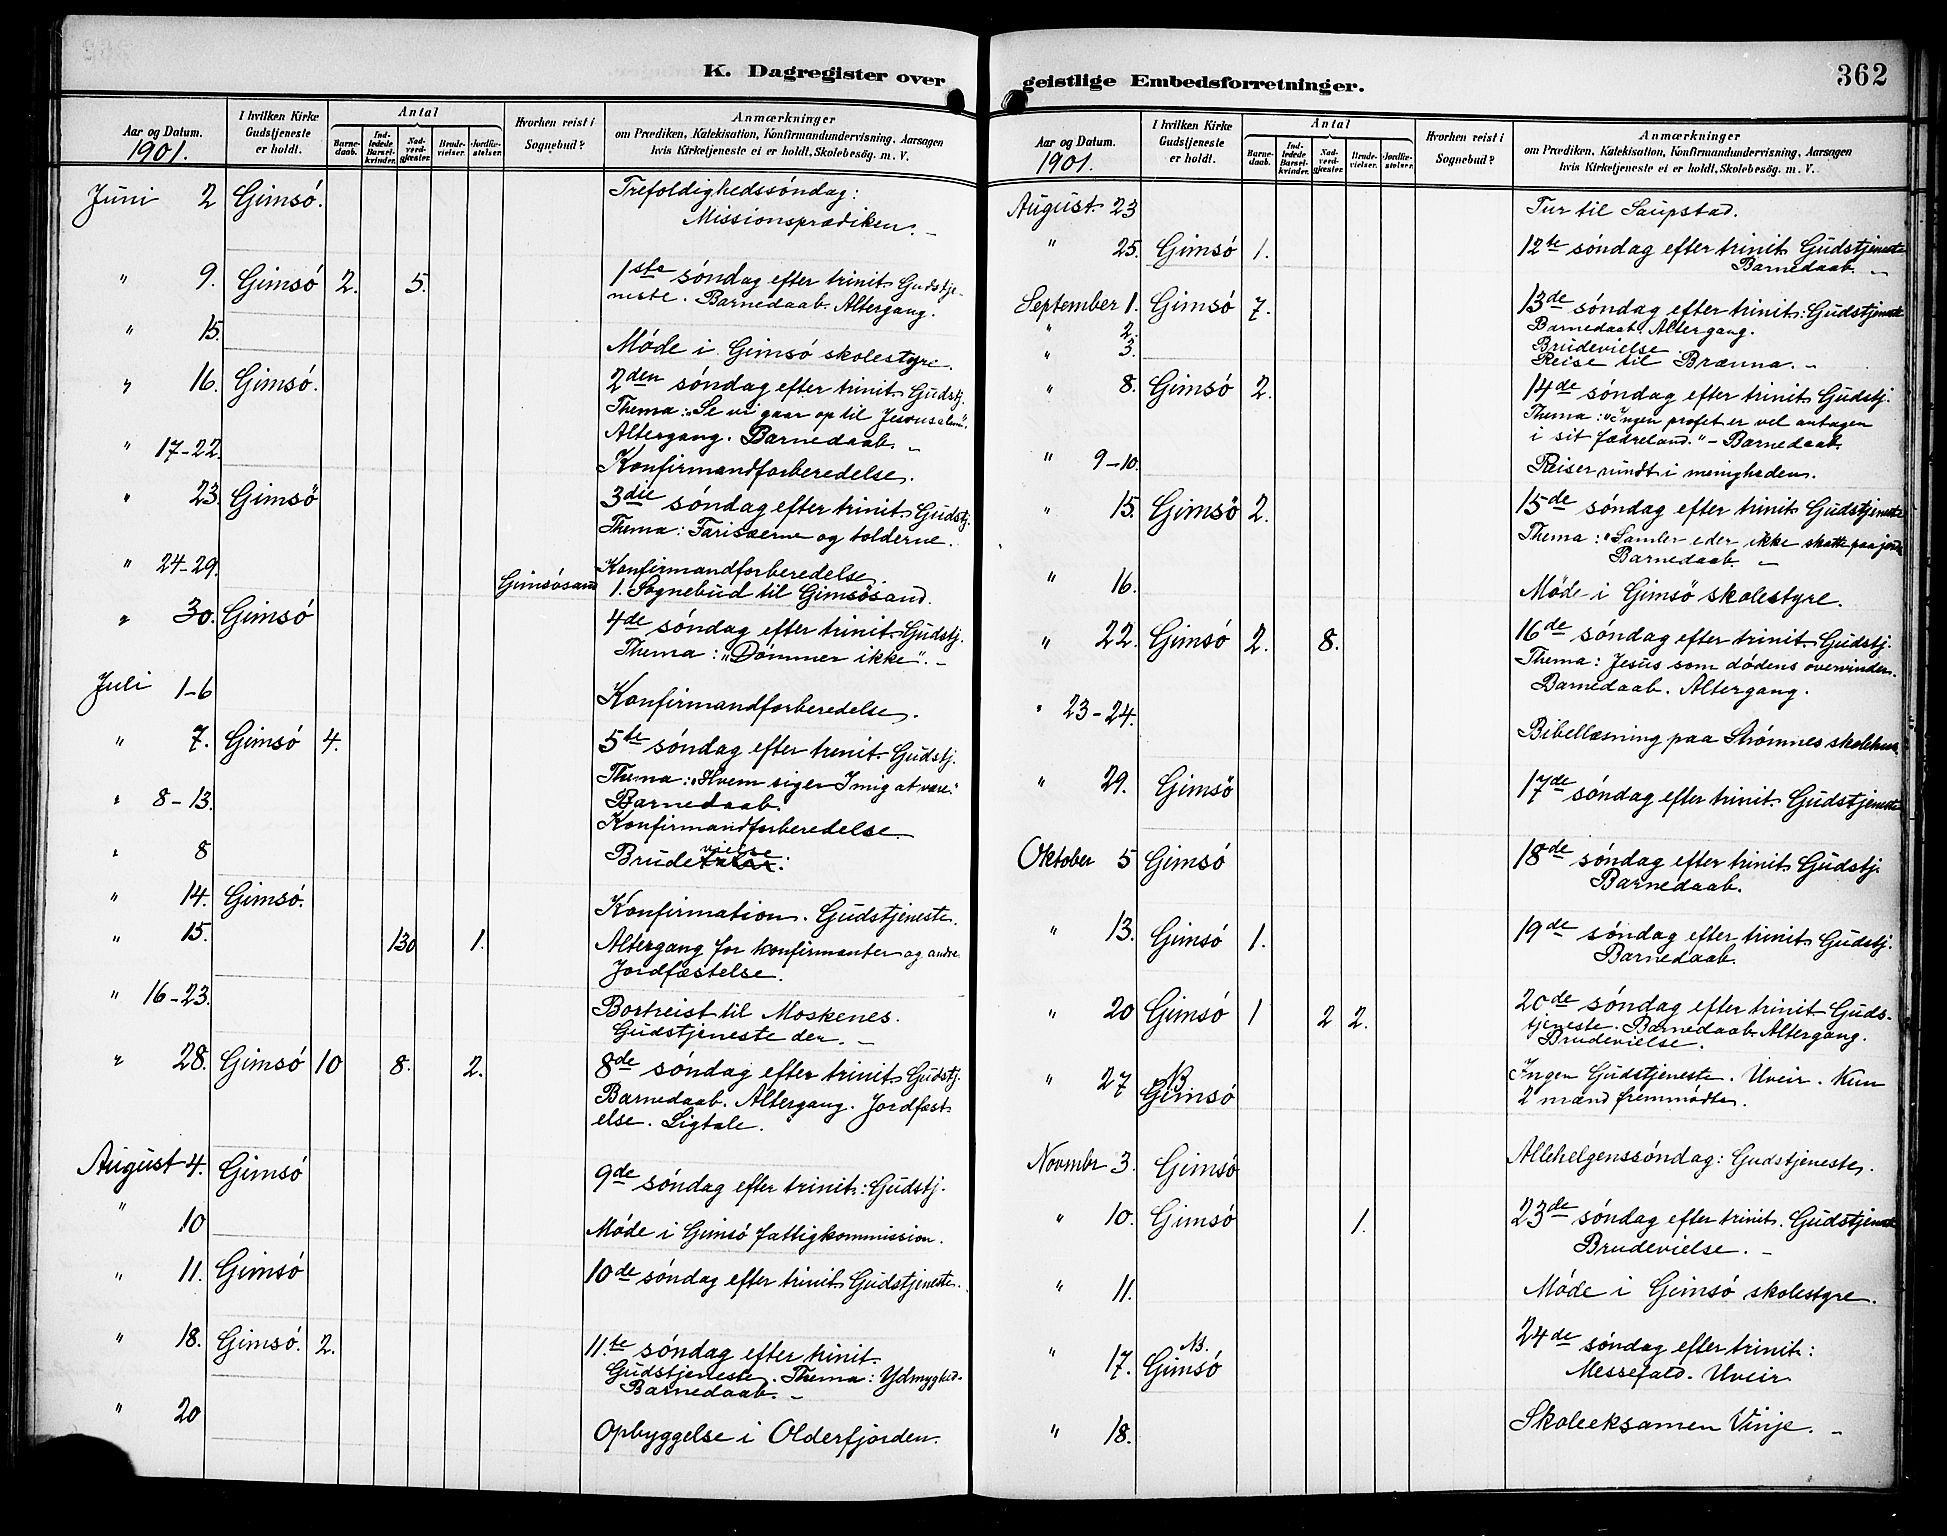 362
K. Dagregister over
Aar og Datum.
1901.
I hvilken Kirke Gudstjeneste er holdt.
Antal
Barne-daab.
Ind-ledede Barsel-kvinder.
Nad-verd-gjester.
Brude-vielser.
Jordfæ-stelser.
Hvorhen reist i Sognebud?
Anmærkninger
om Prædiken, Katekisation, Konfirmandundervisning, Aarsagen
hvis Kirketjeneste ei er holdt, Skolebesøg. m. V.
Juni 2 Gimsó. Trefoldighedssóndag:
Missionsprædiken. –
" 9. Gimsó 2. 5. 1ste sóndag efter trinit. Gudstje-
neste. Barnedaab. Altergang.
" 15. Móde i Gimsó skolestyre.
" 16. Gimsó. 2den sóndag efter trinit. Gudstj.
Thema: "Se vi gaar op til Jerusalem".
Altergang. Barnedaab. "
" 17-22. Konfirmandforberedelse.
" 23. Gimsö 3die sóndag efter trinit. Gudstj.
Thema: Farisæerne og tolderne.
" 24-29. Konfirmandforberedelse.
Gimsösand 1. Sognebud til Gimsösand.
" 30. Gimsó 4de sóndag efter trinit. Gudstj.
Thema: "Dómmer ikke". –
Juli 1-6 Konfirmandforberedelse.
" 7. Gimsó 4. 5te sóndag efter trinit. Gudstj.
Thema: "Hvem siger I mig at være"
Barnedaab.
" 8-13. Konfirmandforberedelse
" 8 Brudevielse:
" 14. Gimsó. Konfirmation. Gudstjeneste.
" 15. 130 1. Altergang for konfirmanter og andre.
Jordfæstelse.
" 16-23. Bortreist til Moskenes.
Gudstjeneste der. –
" 28. Gimsó 10 8. 2. 8de sóndag efter trinit. Gudstj.
Barnedaab. Altergang. Jordfæst-
else. Ligtale.
August 4. Gimsó 9de sóndag efter trinit: Gudstj.
" 10 Móde i Gimsó fattigkommission.
" 11. Gimsó 10de sóndag efter trinit. Gudstjeneste.
" 18. Gimsó. 2. 11.te sóndag efter trinit.
Gudstjeneste. Thema: Ydmyghed.
Barnedaab. –
" 20 Opbyggelse i Olderfjorden.
geistlige Embedsforretninger.
Aar og Datum.
1901.
I hvilken Kirke Gudstjeneste er holdt.
Antal
Barne-daab.
Ind-ledede Barsel-kvinder.
Nad-verd-gjester.
Brude-vielser.
Jordfæ-stelser.
Hvorhen reist i Sognebud?
Anmærkninger
om Prædiken, Katekisation, Konfirmandundervisning, Aarsagen
hvis Kirketjeneste ei er holdt, Skolebesøg. m. V.
August. 23 Tur til Saupstad.
" 25. Gimsó 1. 12te sóndag efter trinit. Gudstjeneste
Barnedaab. "
September 1. Gimsó 7. 13de sóndag efter trinit: Gudstjeneste
Barnedaab. Altergang.
" 2. Brudevielse
" 3. Reise til Brænna. –
" 8. Gimsó 2. 14de sóndag efter trinit. Gudstj.
Thema: "Ingen profet er vel antagen
i sit fædreland." – Barnedaab.
" 9-10. Reiser rundt i menigheden.
" 15. Gimsö 2. 15de sóndag efter trinit. Gudstjeneste
Thema: "Samler eder ikke skatte paa jorde
Barnedaab. –
" 16. Móde i Gimsö skolestyre.
" 22. Gimsó 2. 8. 16de sóndag efter trinit. Gudstj.
Thema: Jesus som dódens overvinder.
Barnedaab. Altergang.
" 23-24. Bibellæsning paa Strømnes skolehus.
" 29. Gimsö 17de sóndag efter trinit. Gudstjeneste
Oktober 5 Gimsó 18de sóndag efter trinit. Gudstj.
Barnedaab.
" 13. Gimsó 1. 19de sóndag efter trinit. Gudstj.
Barnedaab.
" 20 Gimsó 1 2 2. 20de sóndag efter trinit. Guds-
tjeneste. Barnedaab. Altergang.
Brudevielse.
" 27 NB Gimsó Ingen Gudstjeneste. Uveir. Kun
2 mænd fremmódte.
Novembr 3. Gimsó Allehelgenssóndag: Gudstjeneste.
" 10. Gimsó 1. 23de sóndag efter trinit. Gudstjeneste
Brudevielse. –
" 11. Móde i Gimsó skolestyre.
" 17. NB. Gimsó 24de sóndag efter trinit:
Messefald. Uveir
" 18. Skoleeksamen Vinje. –